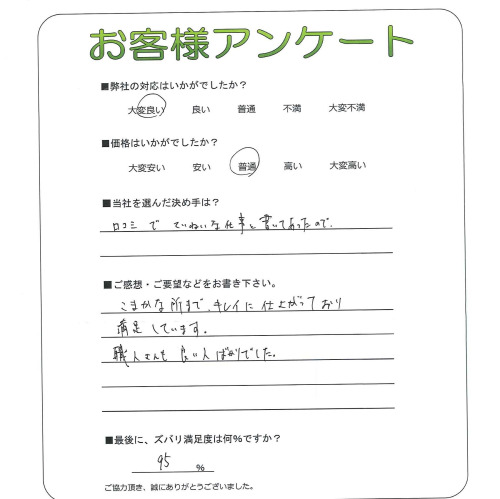 お客様アンケート
■弊社の対応はいかがでしたか?
大変良い 良い 普通 不満 大変不満
■価格はいかがでしたか?
大変安い 安い 普通 高い 大変高い
■当社を選んだ決め手は?
口コミで ていねいな仕事と書いてあったので。
■ご感想・ご要望などをお書き下さい。
こまかな所まで、キレイに仕上がっており
満足しています。
職人さんも良い人ばかりでした。
■最後に、ズバリ満足度は何%ですか?
95 %
ご協力頂き、誠にありがとうございました。